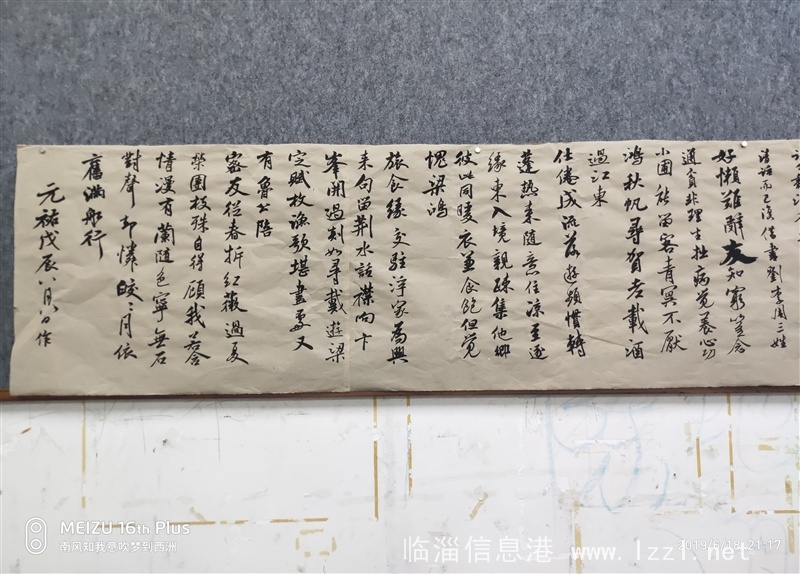 清話而已復借書劉李周三姓
好懶難辭友知窮豈念
通貧非理生拙病覺養心功
小圃能留客青冥不厭
鴻秋帆尋賀老載酒
過江東
仕倦成流落遊頻慣轉
蓬熱來隨意住涼至逐
緣東入境親疎集他鄉
彼此同暖衣並食飽但覺
愧梁鴻
旅食緣交駐浮家為興
來句留荊水話襟向卞
峯開過剡如尋戴遊梁
定賦枚漁歌堪畫處又
有魯公陪
密友從春拆紅薇過夏
榮團枝殊自得顧我若含
情漫有蘭隨色寧無石
對聲却憐皎々月依
舊滿船行
元祐戊辰八月八日作
MEIZU 16th Plus
南风知我意吹梦到西洲
2019/6/18 21:17
临淄信息港 www.lzzl.net